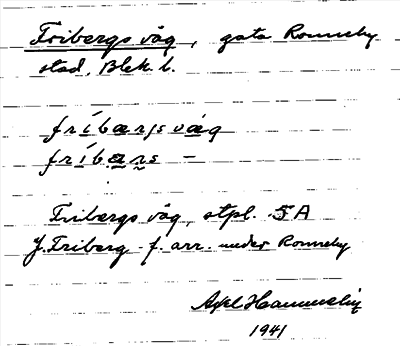 Fribergs väg, gata Ronneby
stad, Blek. l.
fríbærjs väg
fríbærs –
Fribergs väg, stpl. 5A
J. Friberg - f. arr. under Ronneby
Axel
1941